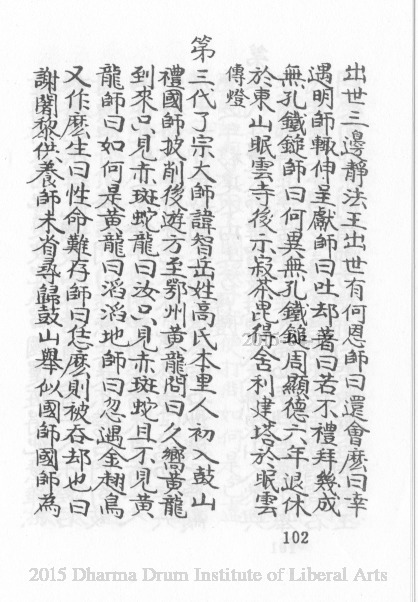 出世三邊靜法王出世有何恩師曰還會麼曰幸
遇明師輒伸呈獻師曰吐却著曰若不禮拜幾成
無孔鐵鎚師曰何異無孔鐵鎚周顯德六年退休
於東山眠雲寺後示寂茶毘得舍利建塔於眠雲
傳燈
第三代了宗大師諱智岳姓高氏本里人初入鼓山
禮國師披削後遊方至鄂州黃龍問曰久嚮黃龍
到來只見赤斑蛇龍曰汝只見赤斑蛇且不見黃
龍師曰如何是黃龍曰滔滔地師曰忽遇金翅鳥
又作麼生曰性命難存師曰恁麼則被吞却也曰
謝闍黎供養師未省尋歸鼓山舉似國師國師為
102
2015 Dharma Drum Institute of Liberal Arts